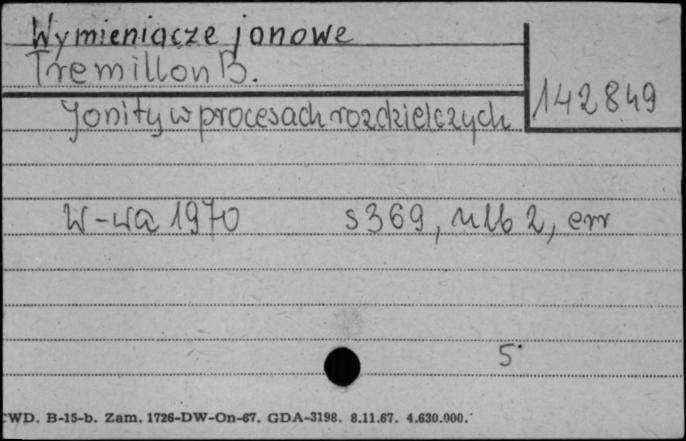 Wymieniacze jonowe
Tremillon B.
142849
Jonity w procesach rozdzielczych
W-wa 1970 s 369, nlb 2, err
5
CWD. B-15-b. Zam. 1726-DW-On-67. GDA-3198. 8.11.67. 4.630.000.